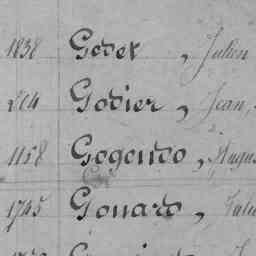 1838 Godet, Julien
214 Godier, Jean,
1158 Gogendo, Augus
1745 Gonard, Juli